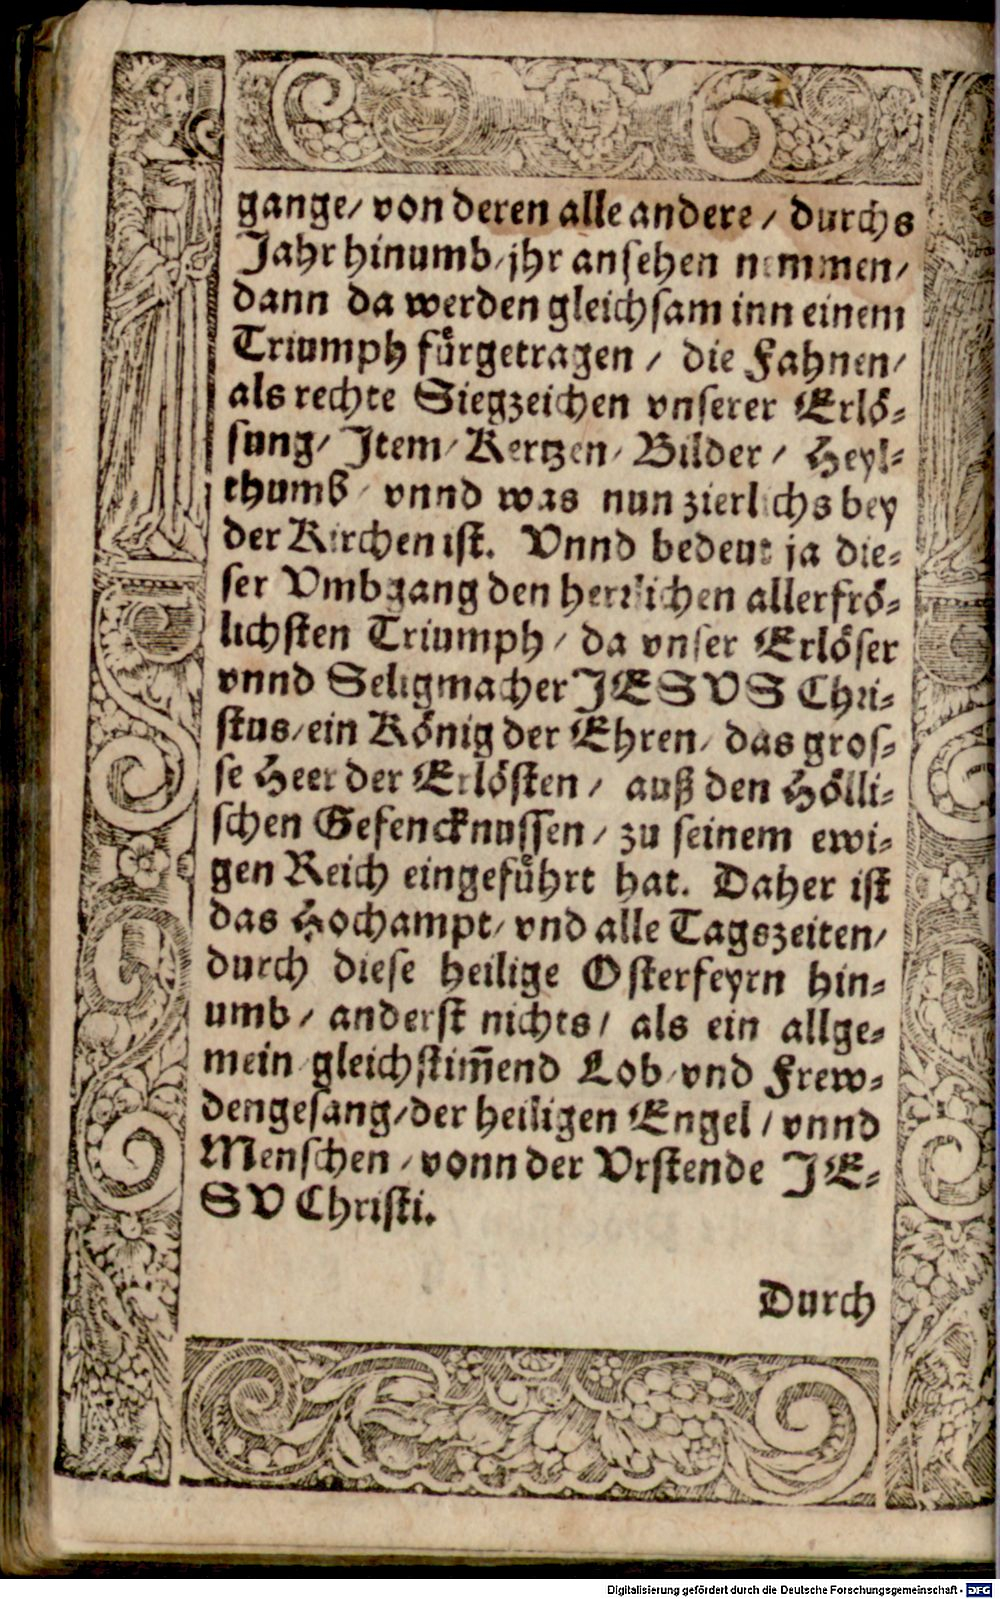 gange/ von deren alle andere/ durchs
Jahr hinumb/ jhr ansehen nemmen/
dann da werden gleichsam inn einem
Triumph fuͤrgetragen/ die Fahnen/
als rechte Siegzeichen vnserer Erloͤ-
sung/ Jtem/ Kertzen/ Bilder/ Heyl-
thumb/ vnnd was nun zierlichs bey
der Kirchen ist. Vnnd bedeut ja die-
ser Vmbgang den herrlichen allerfroͤ-
lichsten Triumph/ da vnser Erloͤser
vnnd Seligmacher JESVS Chri-
stus/ ein Koͤnig der Ehren/ das gros-
se Heer der Erloͤsten/ auß den Hoͤlli-
schen Gefencknussen/ zu seinem ewi-
gen Reich eingefuͤhrt hat. Daher ist
das Hochampt/ vnd alle Tagszeiten/
durch diese heilige Osterfeyrn hin-
umb/ anderst nichts/ als ein allge-
mein/ gleichstim̄end Lob/ vnd Frew-
dengesang/ der heiligen Engel/ vnnd
Menschen/ vonn der Vrstende JE-
SV Christi.
Durch
Digitalisierung gefördert durch die Deutsche Forschungsgemeinschaft - DFG